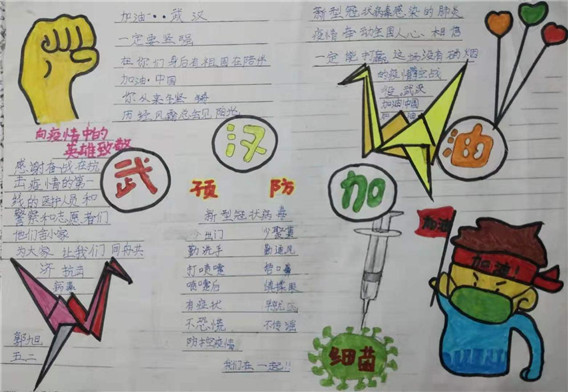 加油··武汉
一定要坚强
在你们身后有祖国在陪伴
加油·中国
你从来不坚
历经风霜总会见阳光
新型冠状病毒感染的肺炎
疫情牵动全国人心 相信
一定能打赢 这场没有硝烟
的疫情
加油中国
向疫情中的
英雄致敬
感谢奋战在抗
击疫情的第一
线的医护人员和
警察和志愿者们
他们舍小家
为大家 让我们同舟共
济 抗击
病毒
郭旭
五.二
武
汉
加
油
预 防
新型冠状病毒
少出门 少聚集
勤洗手 勤通风
打喷嚏 捂口鼻
喷嚏后 慎揉眼
有症状
不恐慌 不传谣
明
我们在一起!!
加油
加油!
细菌